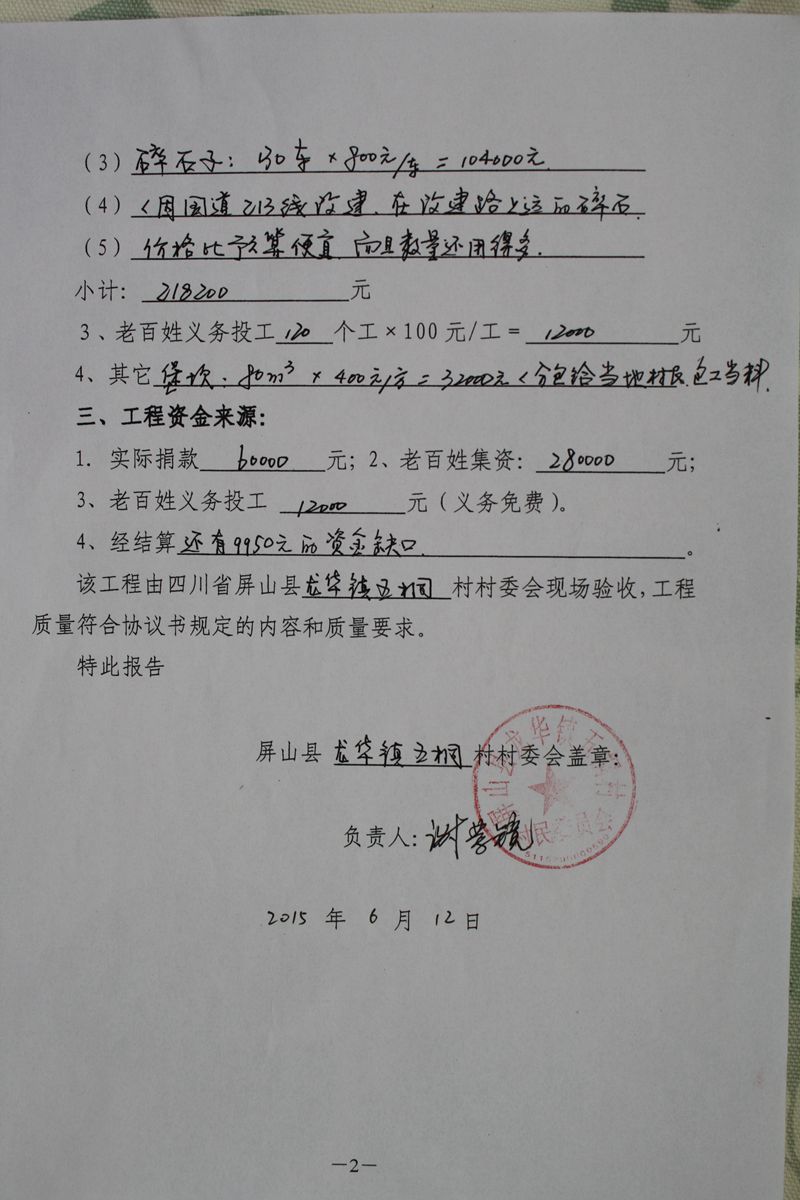 （3）碎石子：130车×800元/车=104000元.
（4）（因国道213线改建、在改建路上运的碎石.
（5）价格比予算便宜、而且数量还用得多.
小计：218200元
3、老百姓义务投工120个工×100元/工=12000元
4、其它堡坎：80m³×400元/方=32000元（分包给当地村民、包工当料.
三、工程资金来源：
1. 实际捐款60000元；2、老百姓集资：280000元；
3、老百姓义务投工12000元（义务免费）。
4、经结算还有9950元的资金缺口.。
该工程由四川省屏山县龙华镇五桐村村委会现场验收，工程
质量符合协议书规定的内容和质量要求。
特此报告
屏山县龙华镇五桐村村委会盖章：
屏山县龙华镇五桐村
村民委员会
负责人：谢
2015年6月12日
—2—